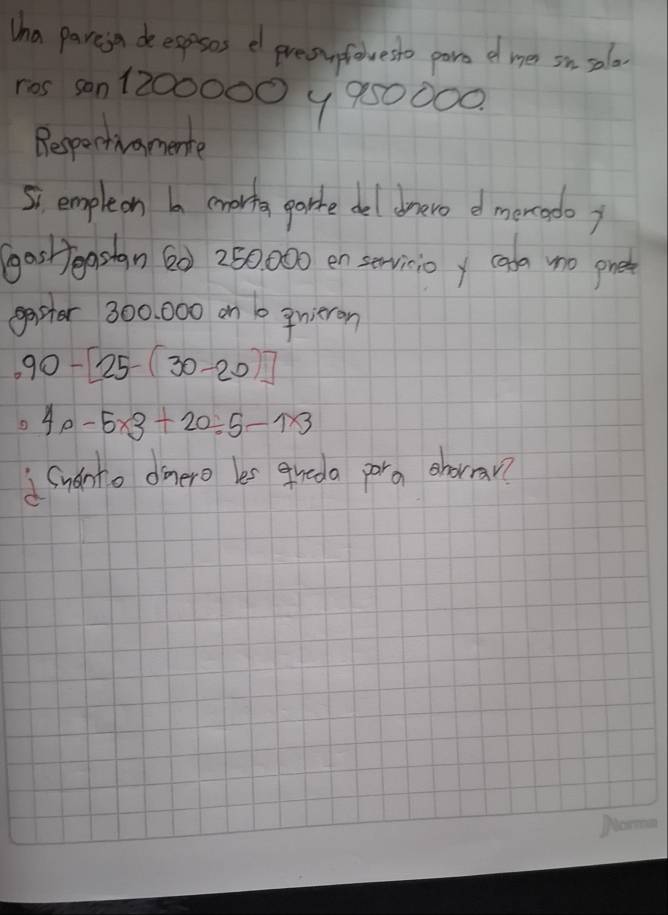 Una pareja de esposos el presupfouesto para el mes sn sala-
rios son 1200000 y 950000.
Respectivamente
Si emplean la cuorta parte del dinero el mercado y
gastan 250.000 en servicio y cada uno puede
gastar 300.000 en lo quieran
.90-[25-(30-20)]
.40-5x3+20÷5-1x3
¿Cuánto dinero les queda para ahorrar?
Norma